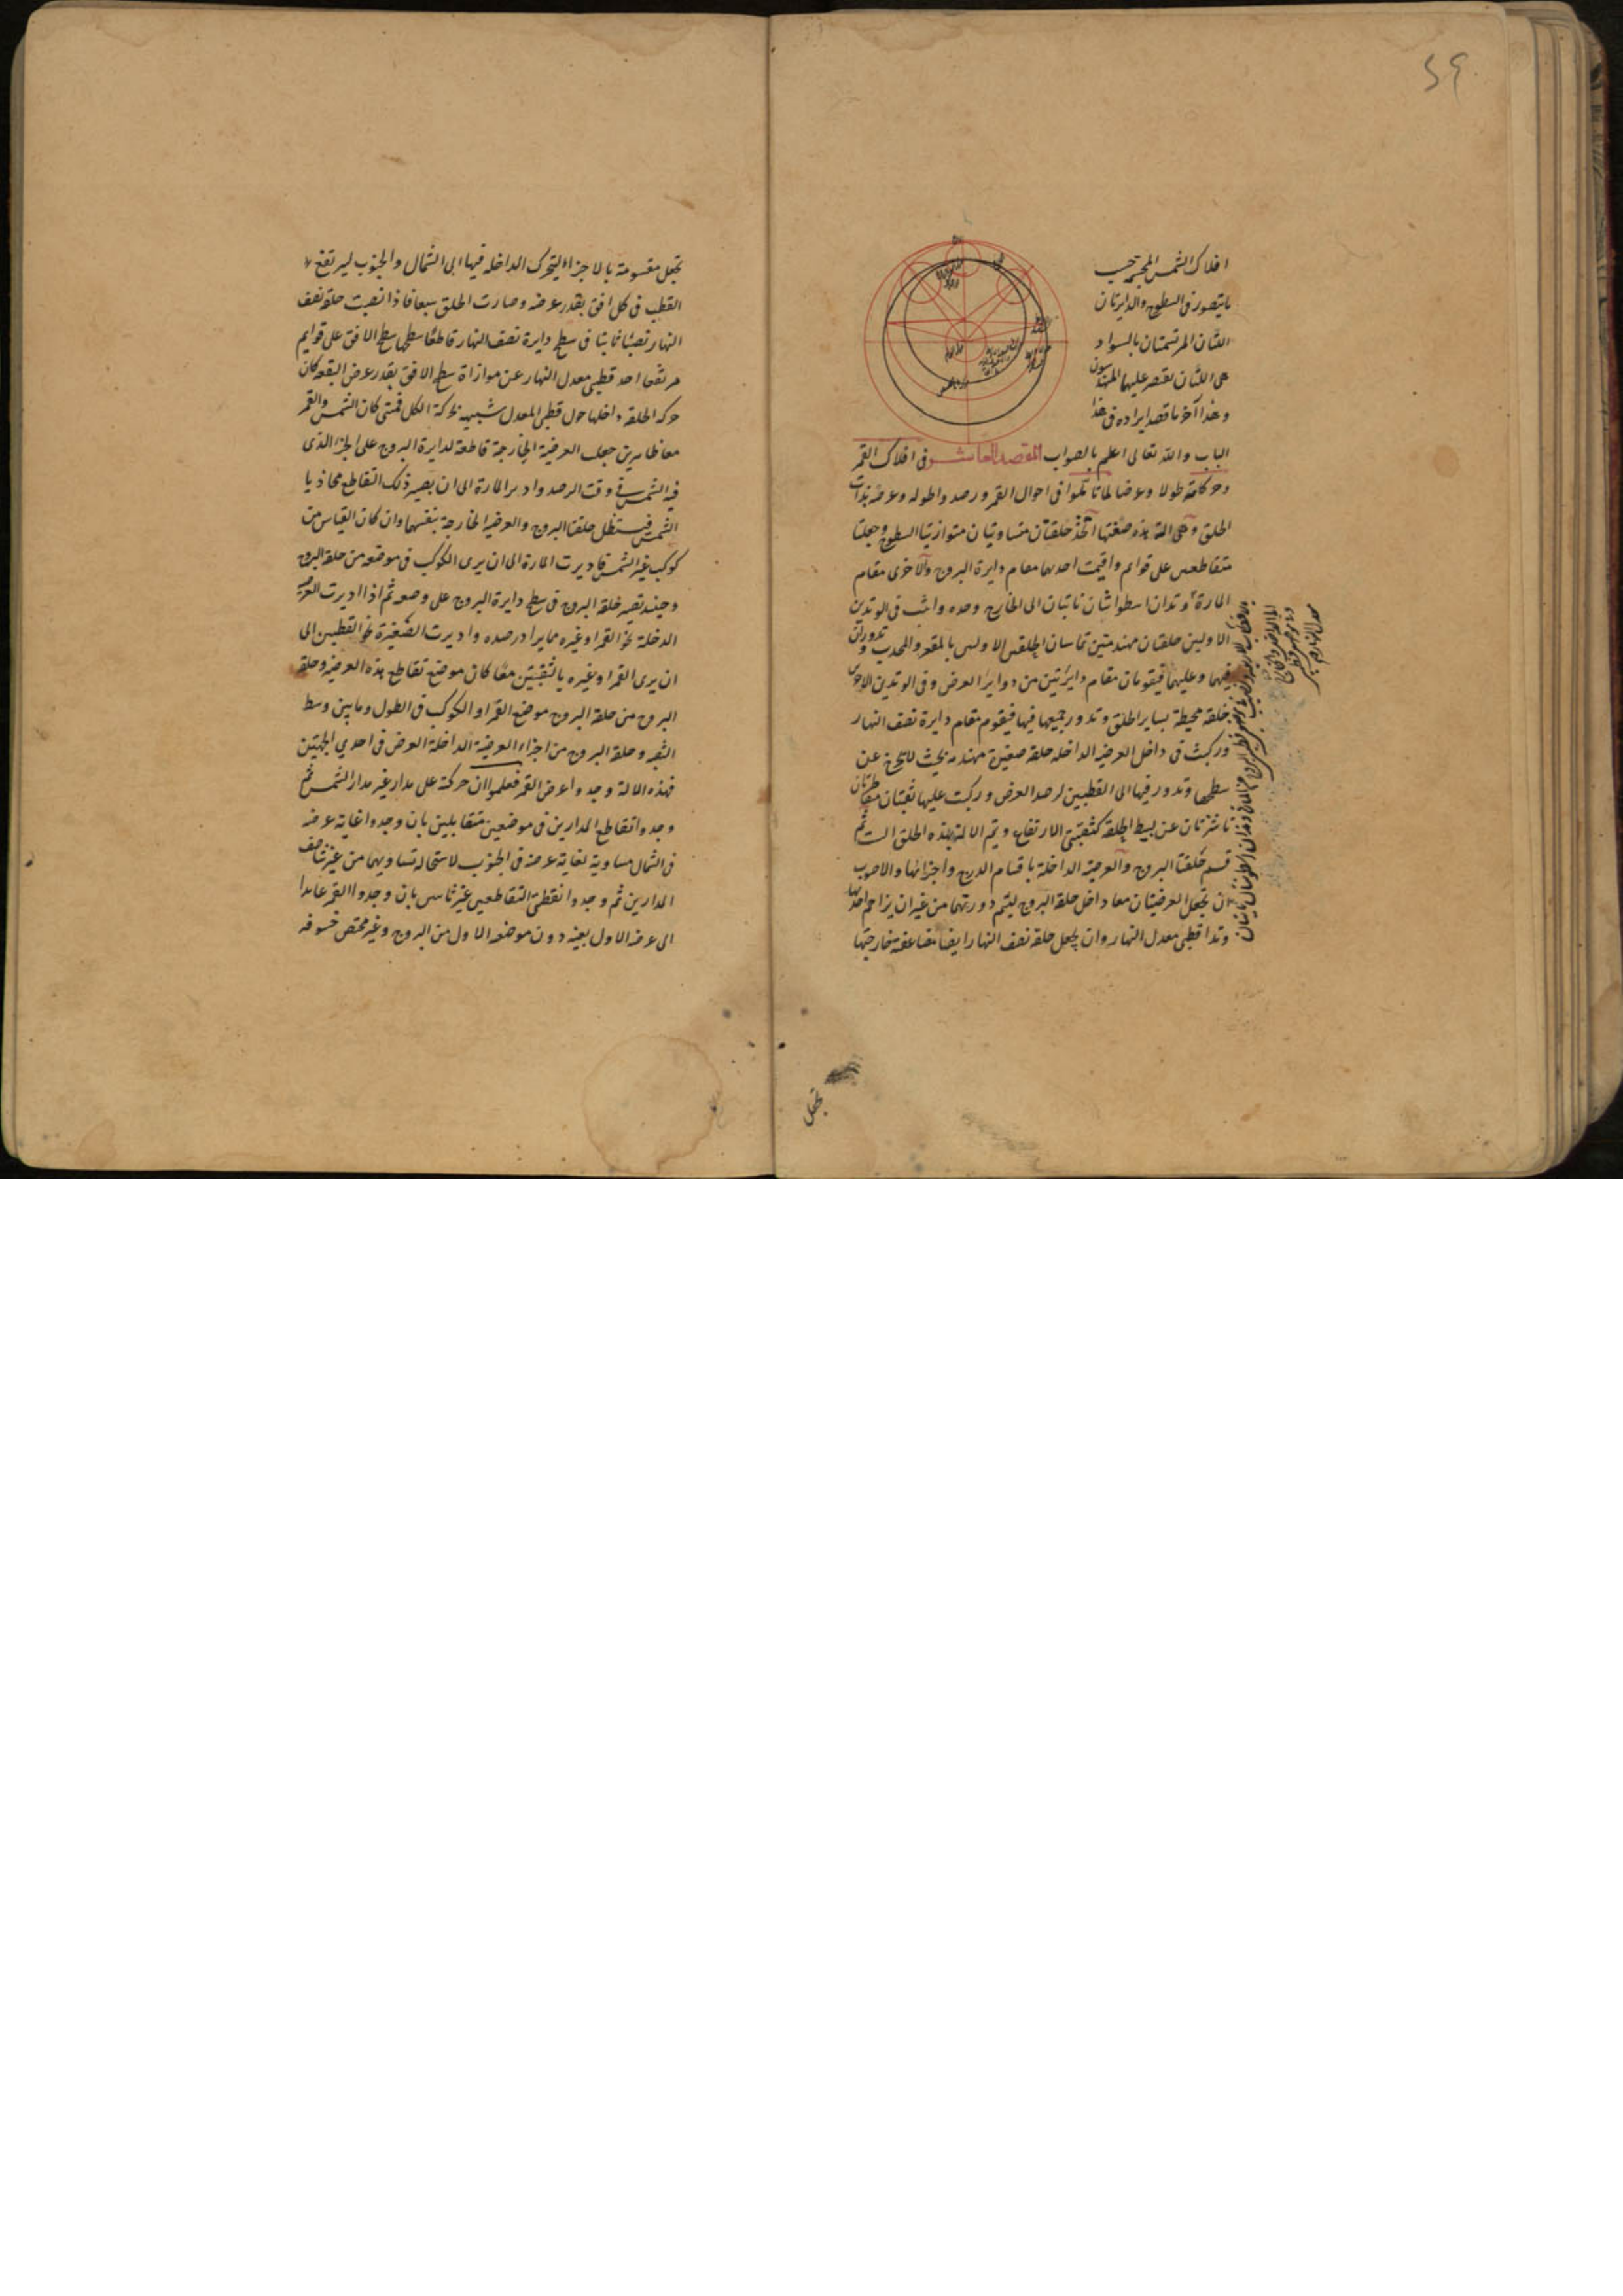 ٢٩
افلاك الشمس المجسمة حسب
ما يتصور فى السطوح والدايرتان
اللتان المرتسمتان بالسواد
هى اللتان يقتصر عليها المهندسون
وهذا آخر ما قصد ايراده فى هذا
الباب والله تعالى اعلم بالصواب المقصد العاشر فى افلاك القمر
وحركاته طولا وعرضا لما تاملوا فى احوال القمر ورصدوا طوله وعرضه بذات
الحلق وهى الة هذه صفتها اتخذ حلقتان متساويتان متوازيتا السطوح وجعلتا
متقاطعتين على قوايم واقيمت احديهما مقام دايرة البروج والاخرى مقام
المارة وتدان اسطوانيان ناتيان الى الخارج وحده واثبت فى الوتدين
الاولين حلقتان مهندمتين تماسان الحلقتين الاوليين بالمقعر والمحدب وتدوران
فيهما وعليهما فيقومان مقام دايرتين من دواير العرض وفى الوتدين الاخرين
حلقة محيطة بساير الحلق وتدور جميعها فيها فيقوم مقام دايرة نصف النهار
وركبت فى داخل العرضية الداخلة حلقة صغيرة مهندمة بحيث لا تخرج عن
سطحها وتدور فيها الى القطبين لرصد العرض وركبت عليها ثقبتان متقاطرتان
ناشزتان عن بسيط الحلقة كثقبتى الارتفاع ويتم الالة بهذه الحلق الست ثم
قسم حلقتا البروج والعرضية الداخلة باقسام الدرج واجزائها والاصوب
ان تجعل العرضيتان معا داخل حلقة البروج ليتم دورتهما من غير ان يزاحم احديهما
وتدا قطبى معدل النهار وان يجعل حلقة نصف النهار ايضا مضاعفة خارجتها
تجعل
تجعل مقسومة بالاجزاء ليتحرك الداخلة فيها الى الشمال والجنوب ليرتفع
القطب فى كل افق بقدر عرضه وصارت الحلق سبعا فاذا نصبت حلقة نصف
النهار نصبا ثابتا فى سطح دايرة نصف النهار قاطعا سطحها سطح الافق على قوايم
مرتفعا احد قطبى معدل النهار عن موازاة سطح الافق بقدر عرض البقعة كان
حركة الحلقة داخلها حول قطبى المعدل شبيهة بحركة الكل فمتى كان الشمس والقمر
معا ظاهرين جعلت العرضية الخارجة قاطعة لدايرة البروج على الجزء الذى
فيه الشمس فى وقت الرصد وادير المارة الى ان يصير ذلك التقاطع محاذيا
الشمس فيستظل حلقتا البروج والعرضية الخارجة بنفسها وان كان القياس من
كوكب غير الشمس فاديرت المارة الى ان يرى الكوكب فى موضعه من حلقة البروج
وحينئذ تصير حلقة البروج فى سطح دايرة البروج على وضعه ثم اذا اديرت العرضية
الداخلة نحو القمر او غيره مما يراد رصده واديرت الصغيرة نحو القطبين الى
ان يرى القمر او غيره بالثقبتين معا كان موضع تقاطع هذه العرضية وحلقة
البروج من حلقة البروج موضع القمر او الكوكب فى الطول وما بين وسط
الثقبة وحلقة البروج من اجزاء العرضية الداخلة العرض فى احدى الجهتين
فبهذه الالة وجدوا عرض القمر فعلموا ان حركته على مدار غير مدار الشمس ثم
وجدوا تقاطع المدارين فى موضعين متقابلين بان وجدوا غاية عرضه
فى الشمال مساوية لغاية عرضه فى الجنوب لاستحالة تساويهما من غير تناصف
المدارين ثم وجدوا نقطتى التقاطعين غير ثابتتين بان وجدوا القمر عايدا
الى عرضه الاول بعينه دون موضعه الاول من البروج وغير مختص خسوفه